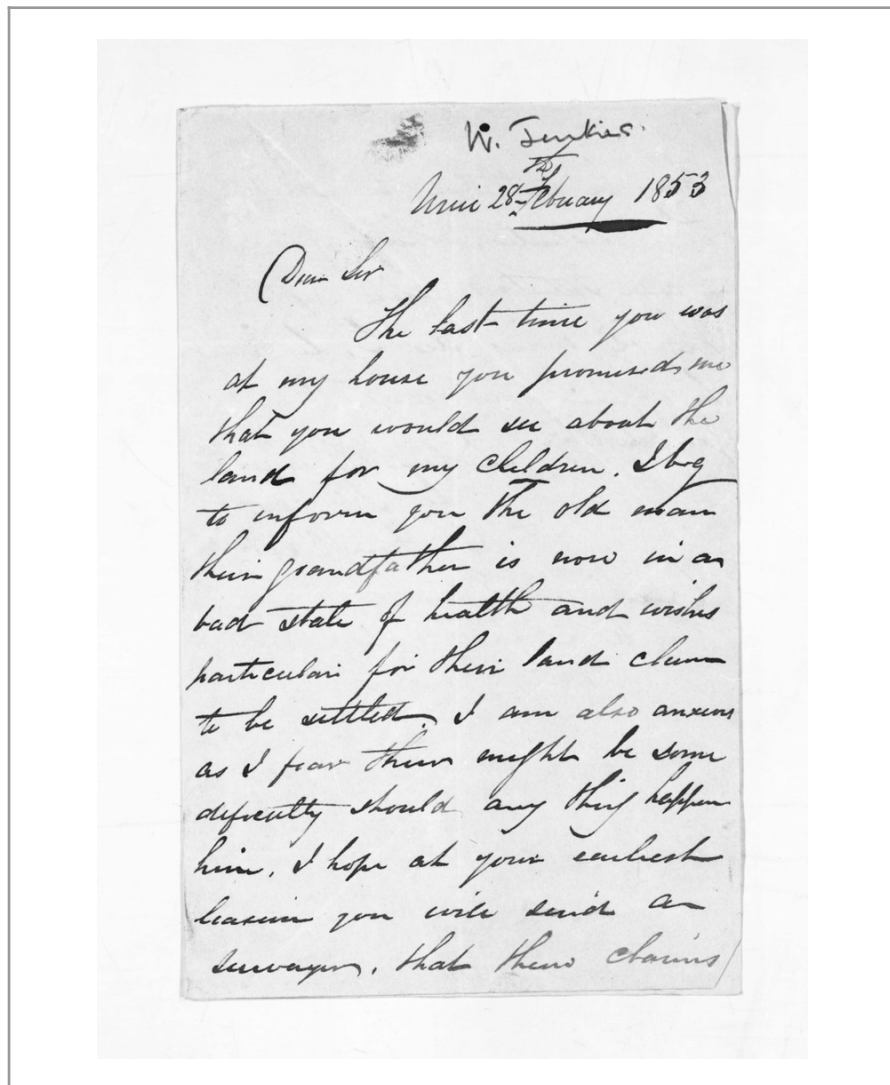 W. Jenkins.
28th February 1853
Dear Sir
The last time you was
at my house you promised me
that you would see about the
land for my children. I beg
to inform you The old man
their grandfather is now in a
bad state of health and wishes
particular for their land claim
to be settled. I am also anxious
as I fear their might be some
deficulty should any thing happen
him. I hope at your earliest
leasure you will send a
survayer, that there claims